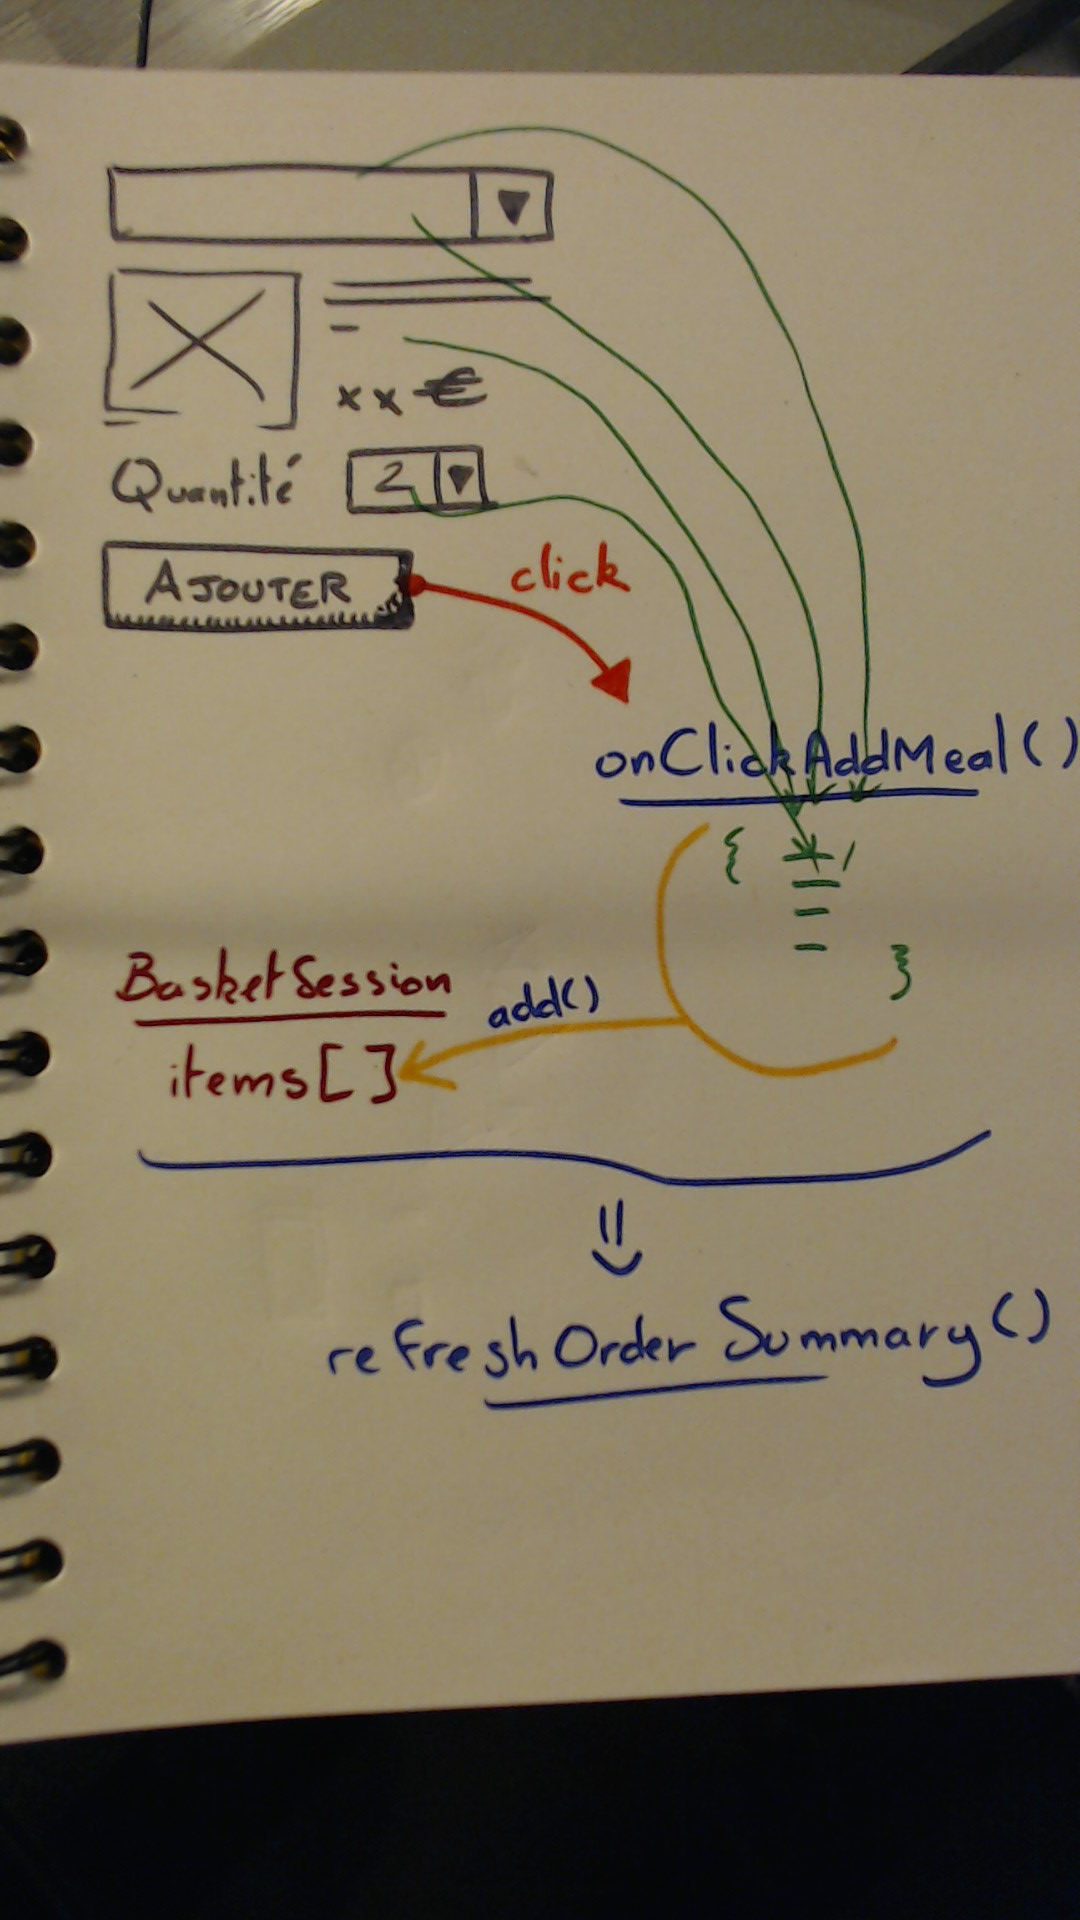 xx €
Quantité 2
AJOUTER
click
onClickAddMeal()
{
}
BasketSession
add()
items[]
refreshOrderSummary()